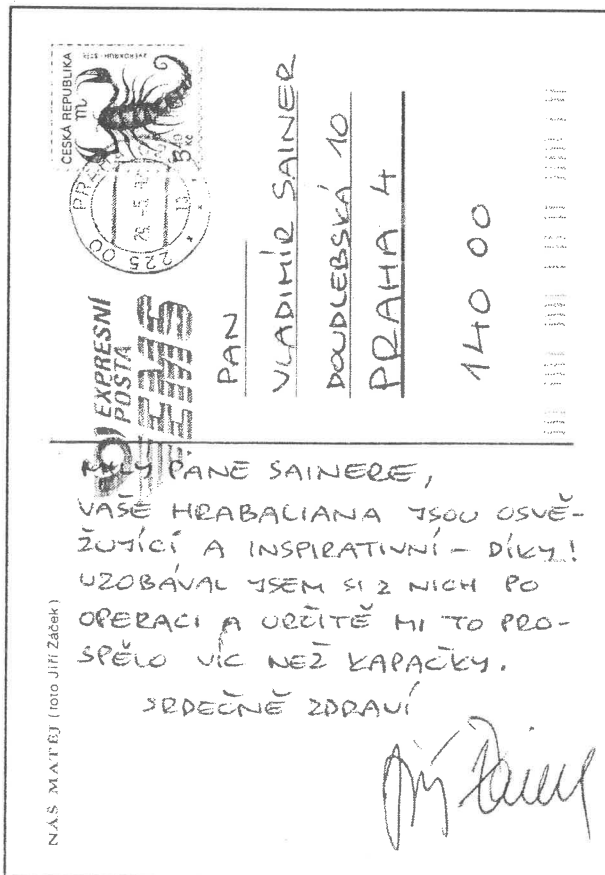 ČESKÁ REPUBLIKA
5 40
Kč
225 00
EXPRESNÍ
POŠTA
EMS
PAN
VLADIMÍR SAINER
DOUDLEBSKÁ 10
PRAHA 4
140 00
MILÝ PANE SAINERE,
VAŠE HRABALIANA JSOU OSVĚ-
ŽUJÍCÍ A INSPIRATIVNÍ – DÍKY!
UZOBÁVAL JSEM SI Z NICH PO
OPERACI A URČITĚ MI TO PRO-
SPĚLO VÍC NEŽ KAPAČKY.
SRDEČNĚ ZDRAVÍ
Jiří Žáček
NÁŠ MATĚJ (foto Jiří Žáček)